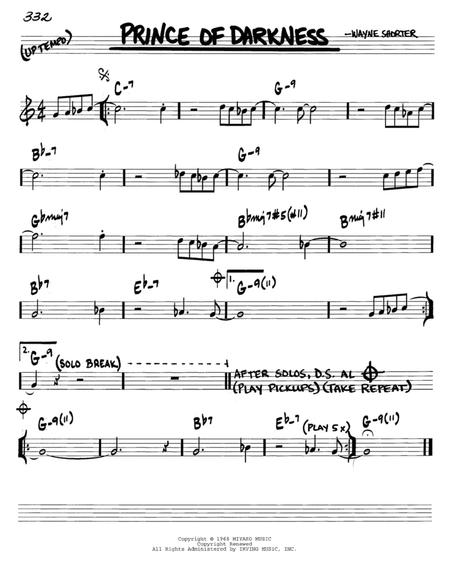 332
PRINCE OF DARKNESS
-WAYNE SHORTER
(UP TEMPO)
C-7 G-9
Bb-7 G-9
Gbmaj7 Bbmaj7#5(#11) Bmaj7#11
Bb7 Eb-7 1. G-9(11)
2. G-9 (SOLO BREAK)
AFTER SOLOS, D.S. AL
(PLAY PICKUPS) (TAKE REPEAT)
G-9(11) Bb7 Eb-7 (PLAY 5X) G-9(11)
Copyright © 1968 MIYAKO MUSIC
Copyright Renewed
All Rights Administered by IRVING MUSIC, INC.